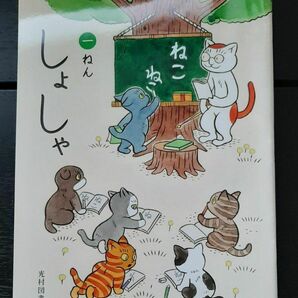 一ねん
しょしゃ
ねこ
ねこ
光村図